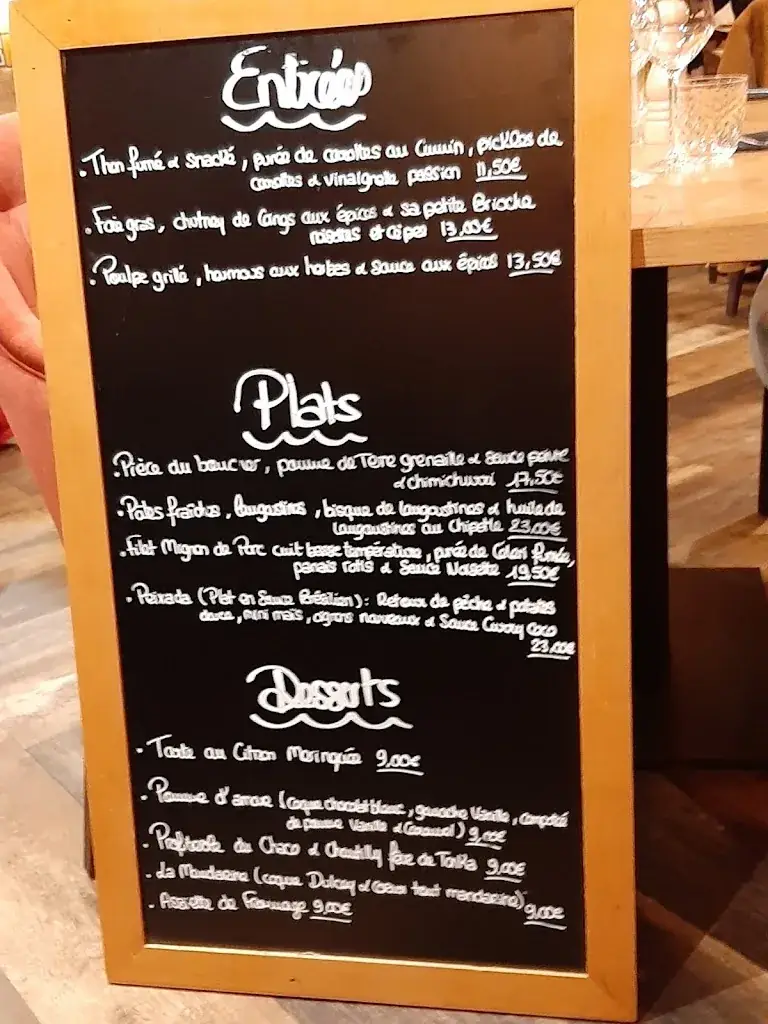 Entrées
. Thon fumé & snacké, purée de carottes au Cumin, pickles de
carottes & vinaigrette passion 11,50€
. Foie gras, chutney de Coings aux épices & sa petite Brioche
noisettes et cèpes 13,00€
. Poulpe grillé, houmous aux herbes & sauce aux épices 13,50€
Plats
. Pièce du boucher, pomme de Terre grenaille & sauce poivre
& chimichurri 17,50€
. Pâtes fraîches, langoustines, bisque de langoustines & huile de
langoustines au Chipotle 23,00€
. Filet Mignon de Porc cuit basse température, purée de Céleri fumée,
panais rotis & Sauce Noisette 19,50€
. Peixada (Plat en Sauce Brésilien): Retour de pêche & patates
douce, mini maïs, oignons nouveaux & Sauce Curry Coco
23,00€
Desserts
. Tarte au Citron Meringuée 9,00€
. Pomme d'amour (coque chocolat blanc, ganache Vanille, compoté
de pomme Vanille & Caramel) 9,00€
. Profiterole du Choco & Chantilly fève de Tonka 9,00€
. La Mandarine (coque Dulcey & coeur tout mandarine)
9,00€
. Assiette de Fromage 9,00€